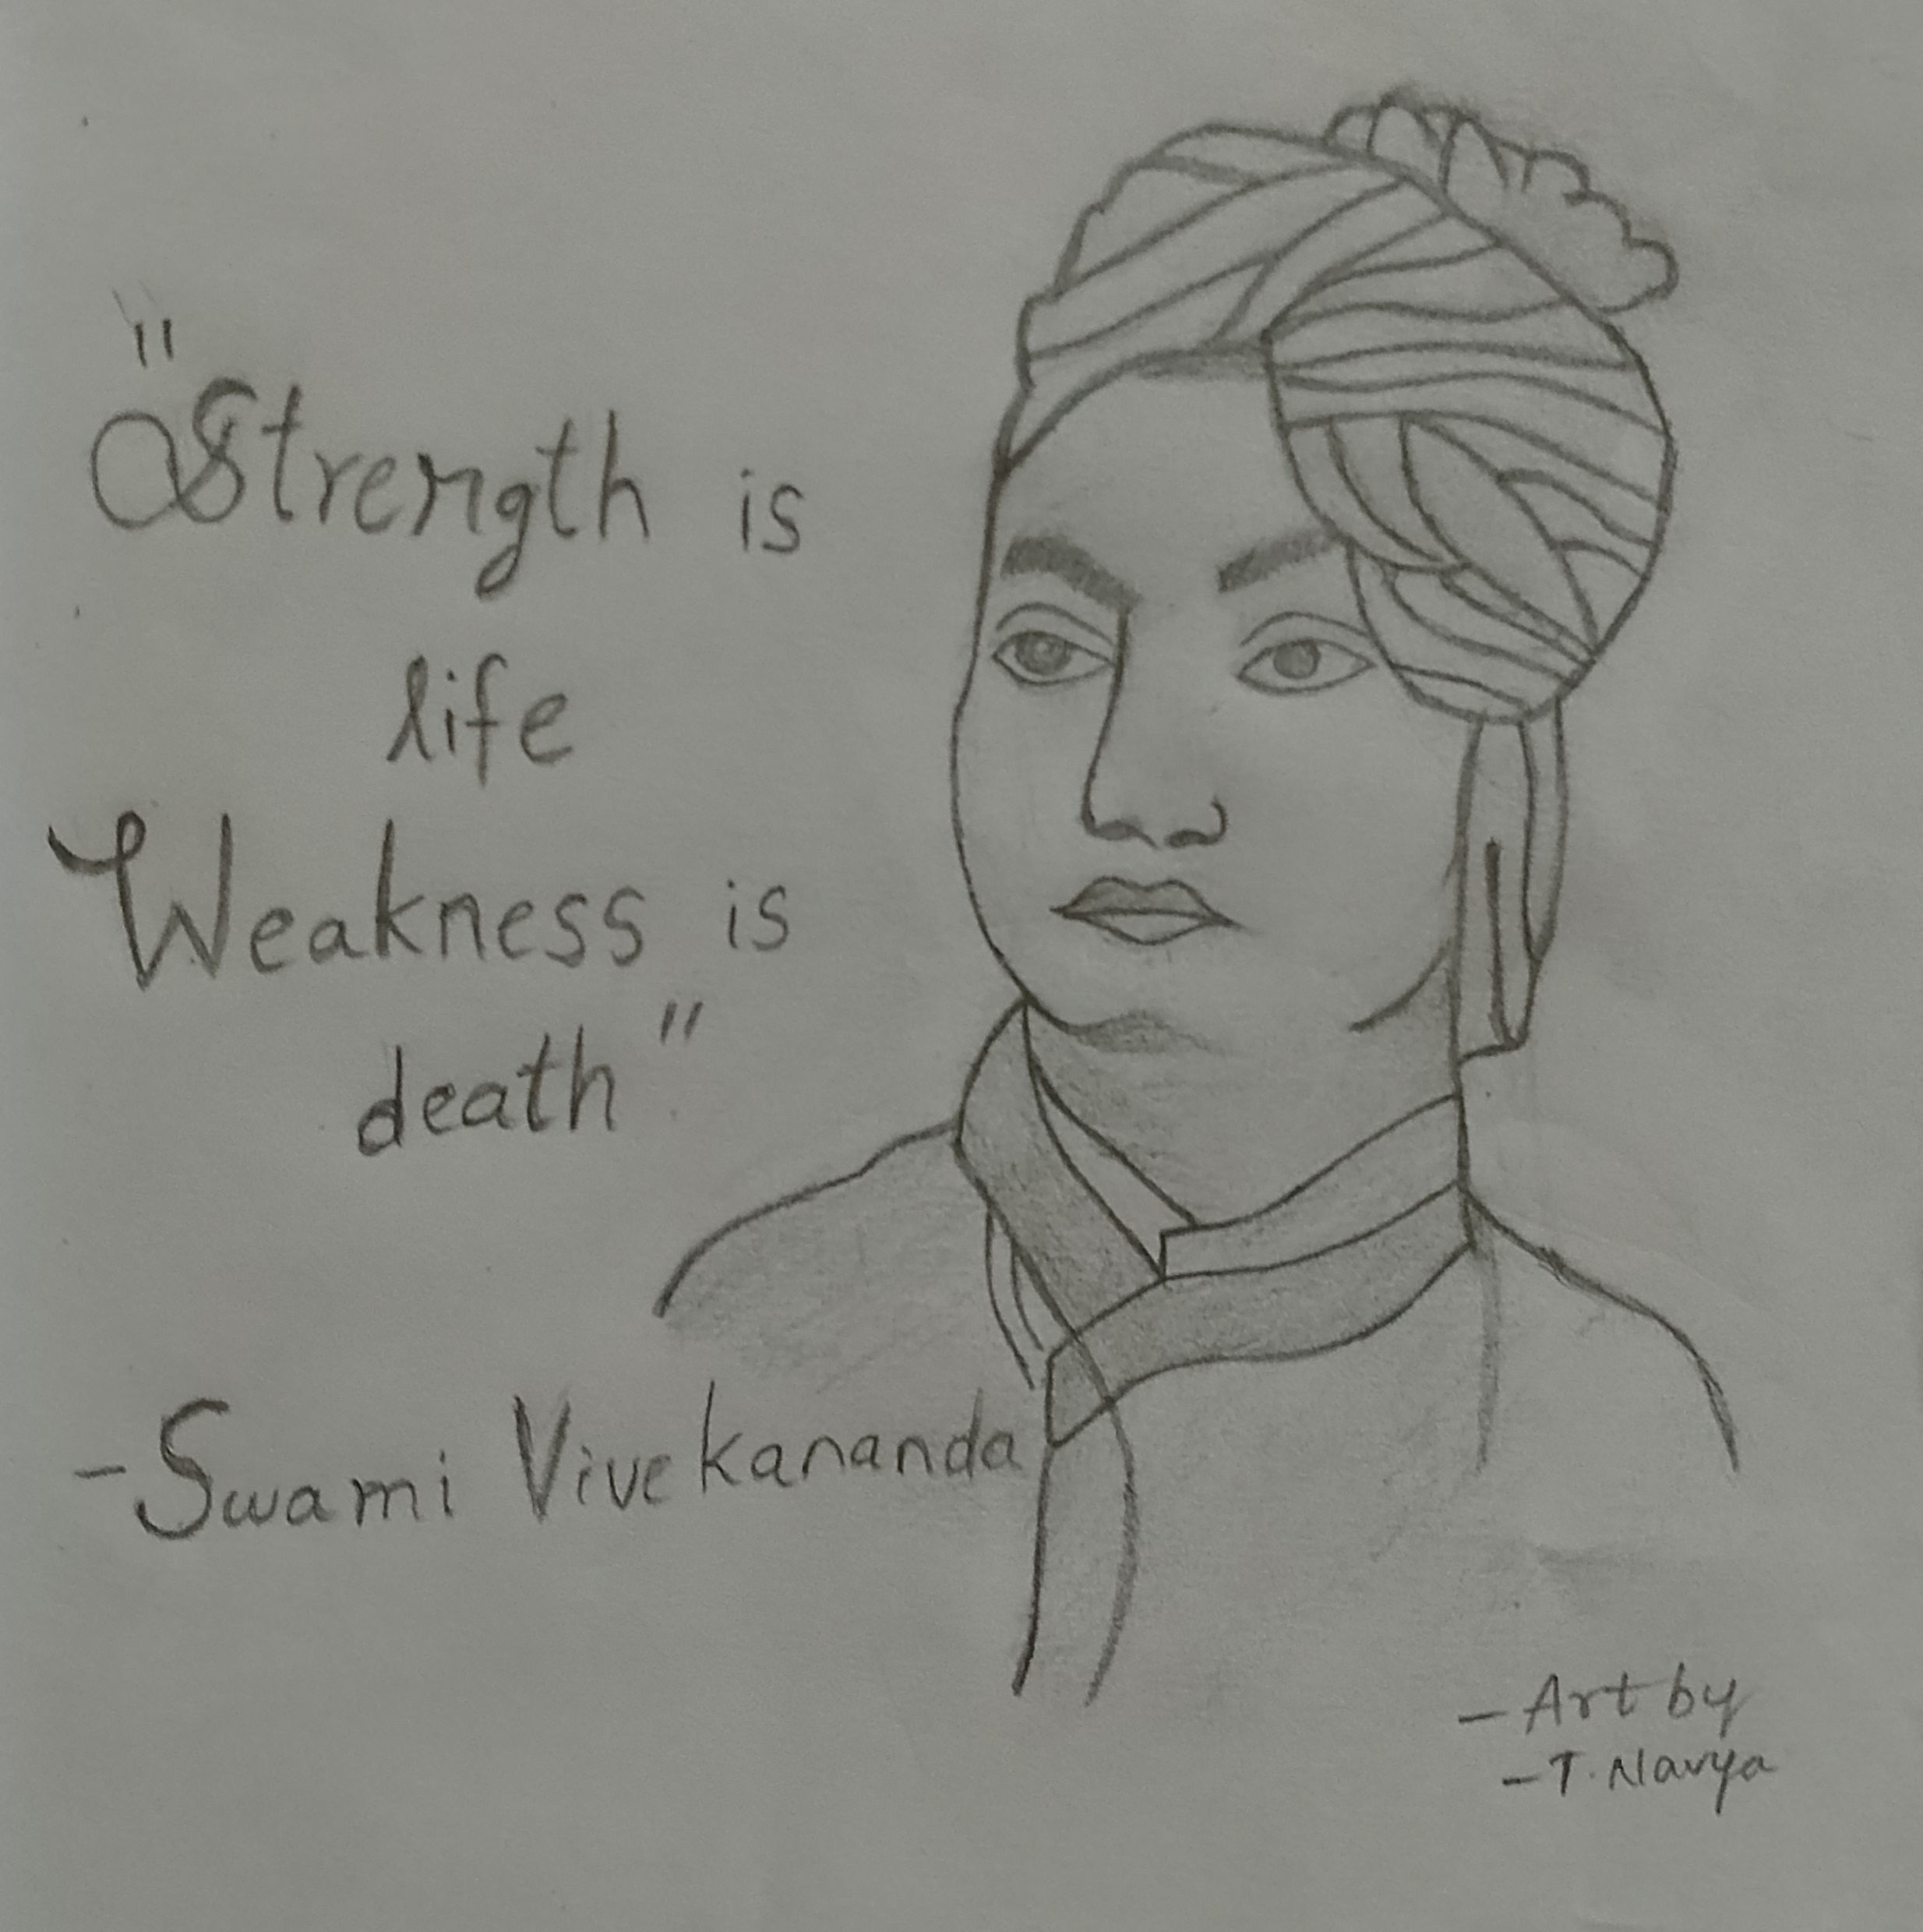 "Strength is
life
Weakness is
death"
-Swami Vivekananda
-Art by
-T. Navya